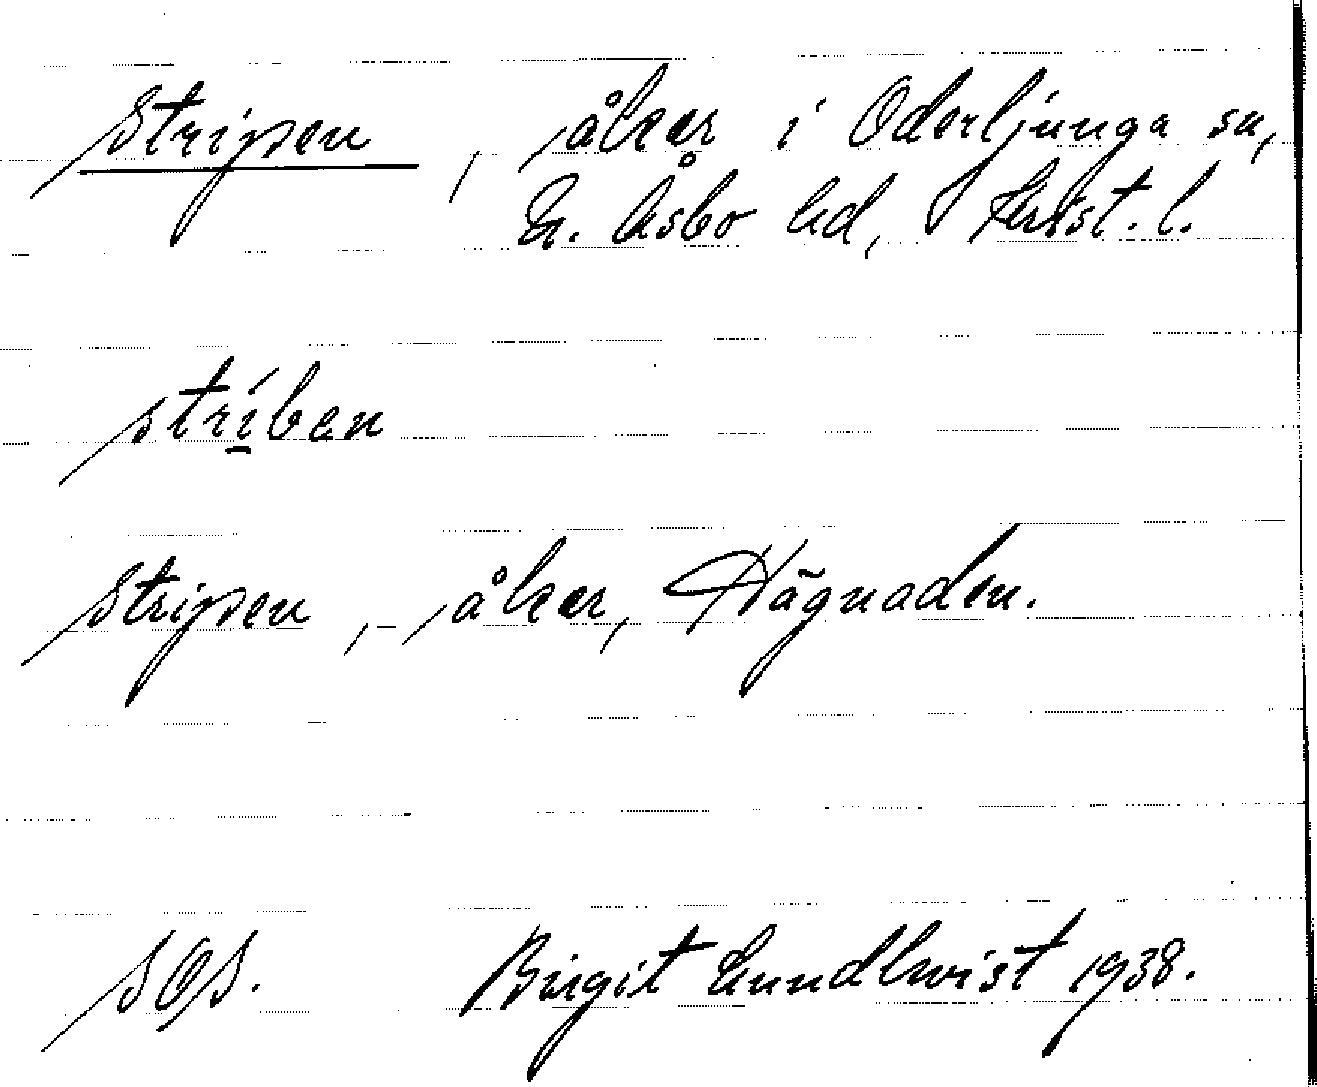 Stripen, åker i Oderljunga sn,
N. Åsbo hd, Krist. l.
stríben
Stripen, åker, Hägnaden.
SOS. Birgit Lundkvist 1938.